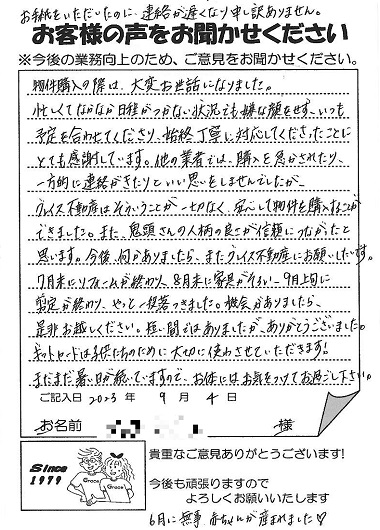 お手紙をいただいたのに、連絡が遅くなり申し訳ありません。
お客様の声をお聞かせください
※今後の業務向上のため、ご意見をお聞かせください。
物件購入の際は、大変お世話になりました。
忙しくてなかなか日程がつかない状況でも嫌な顔をせず、いつも
予定を合わせてくださり、始終丁寧に対応してくださったことに
とても感謝しています。他の業者では、購入を急かされたり、
一方的に連絡がきたりといい思いをしませんでしたが、
グレイス不動産はそういうことが一切なく、安心して物件を購入することが
できました。また、鬼頭さんの人柄の良さが信頼につながったと
思います。今後、何かありましたら、またグレイス不動産にお願いしたいです。
7月末にリフォームが終わり、8月末に家具がそろい、9月上旬に
剪定が終わり、やっと一段落つきました。機会がありましたら、
是非お越しください。短い間ではありましたが、ありがとうございました。
キットセットは子供たちのために大切に使わさせていただきます!
まだまだ暑い日が続いていますので、お体にはお気をつけてお過ごし下さい。
ご記入日 2023 年 9 月 4 日
お名前 様
Since
1979
Grace
Grace
貴重なご意見ありがとうございます!
今後も頑張りますので
よろしくお願いいたします
6月に無事、赤ちゃんが産まれました♡